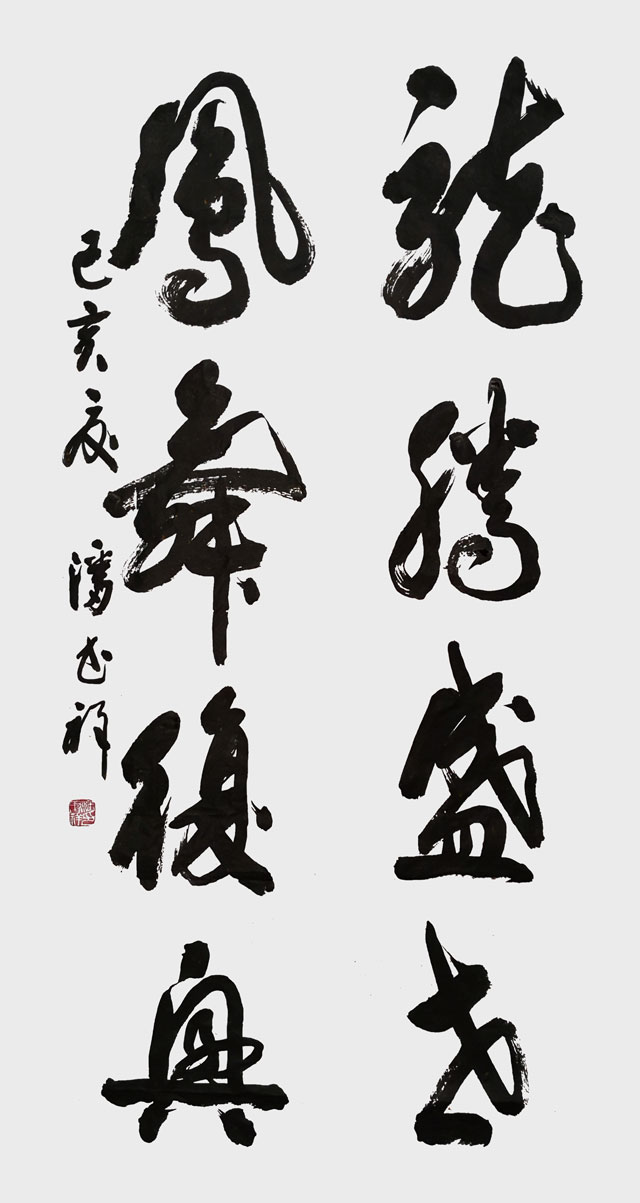 龍騰盛世
鳳舞復興
己亥夏 潘祥